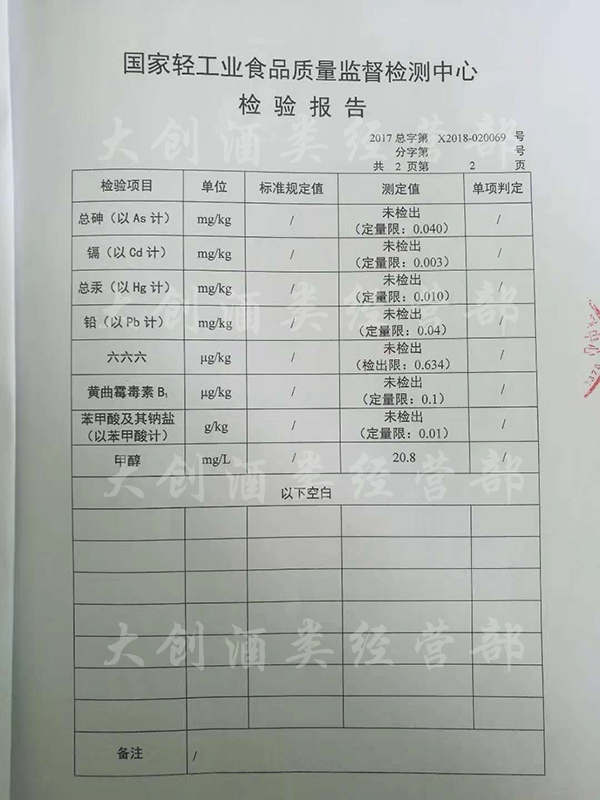 国家轻工业食品质量监督检测中心
检验报告
大创酒类经营部
2017 总字第 X2018-020069 号
分字第 号
共 2 页第 2 页
检验项目 单位 标准规定值 测定值 单项判定
总砷（以 As 计） mg/kg / 未检出 /
（定量限：0.040）
镉（以 Cd 计） mg/kg / 未检出 /
（定量限：0.003）
总汞（以 Hg 计） mg/kg / 未检出 /
（定量限：0.010）
大创酒类经营部
铅（以 Pb 计） mg/kg / 未检出 /
（定量限：0.04）
六六六 μg/kg / 未检出 /
（检出限：0.634）
黄曲霉毒素 B₁ μg/kg / 未检出 /
（定量限：0.1）
苯甲酸及其钠盐 g/kg / 未检出 /
（以苯甲酸计） （定量限：0.01）
甲醇 mg/L / 20.8 /
大创酒类经营部
以下空白
大创酒类经营部
备注 /